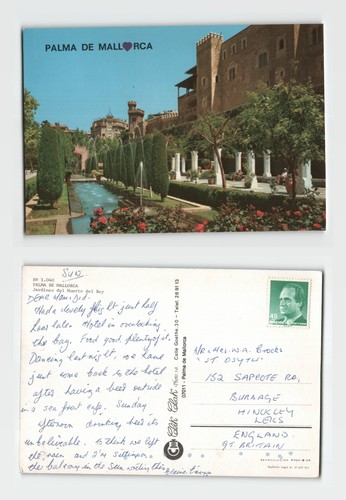 PALMA DE MALLORCA
Sun
BY 1.040
PALMA DE MALLORCA
Jardines del Huerto del Rey
DEAR Mam & Dad.
Had a lovely flight just half
hour late. Hotel is overlooking
the bay. Food good plenty of it.
Dancing last night, we have
just come back to the hotel
after having a beer outside
in a sea front cafe. Sunday
afternoon drinking here its
unbelievable. I think we left
the rain and I'm sitting on
the balcony in the Sun writing this
Calle Goethe 30 - Telef. 28 91 13
07011 - Palma de Mallorca
Mr & Mrs. W.A. Brooks
"ST OSYTH"
152 SAPCOTE RD,
BURBAGE
HINCKLEY
LEICS
ENGLAND.
GT. BRITAIN